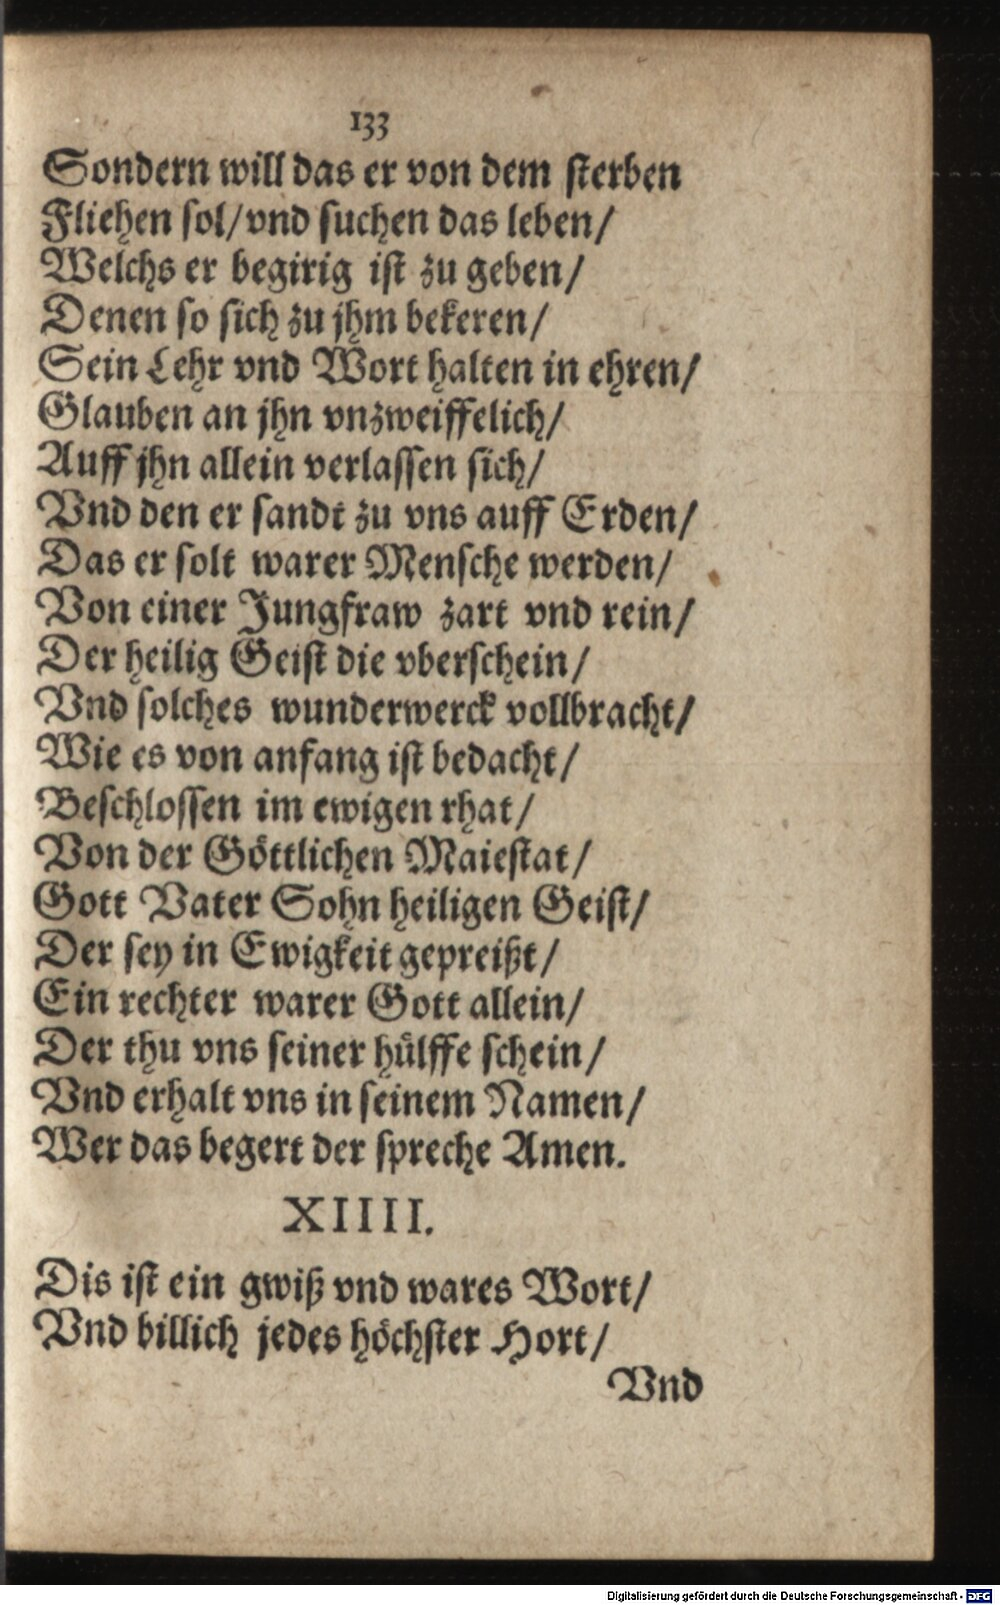 133
Sondern will das er von dem sterben
Fliehen sol/vnd suchen das leben/
Welchs er begirig ist zu geben/
Denen so sich zu jhm bekeren/
Sein Lehr vnd Wort halten in ehren/
Glauben an jhn vnzweiffelich/
Auff jhn allein verlassen sich/
Vnd den er sandt zu vns auff Erden/
Das er solt warer Mensche werden/
Von einer Jungfraw zart vnd rein/
Der heilig Geist die vberschein/
Vnd solches wunderwerck vollbracht/
Wie es von anfang ist bedacht/
Beschlossen im ewigen rhat/
Von der Göttlichen Maiestat/
Gott Vater Sohn heiligen Geist/
Der sey in Ewigkeit gepreißt/
Ein rechter warer Gott allein/
Der thu vns seiner hülffe schein/
Vnd erhalt vns in seinem Namen/
Wer das begert der spreche Amen.
XIIII.
Dis ist ein gwiß vnd wares Wort/
Vnd billich jedes höchster Hort/
Vnd
Digitalisierung gefördert durch die Deutsche Forschungsgemeinschaft - DFG